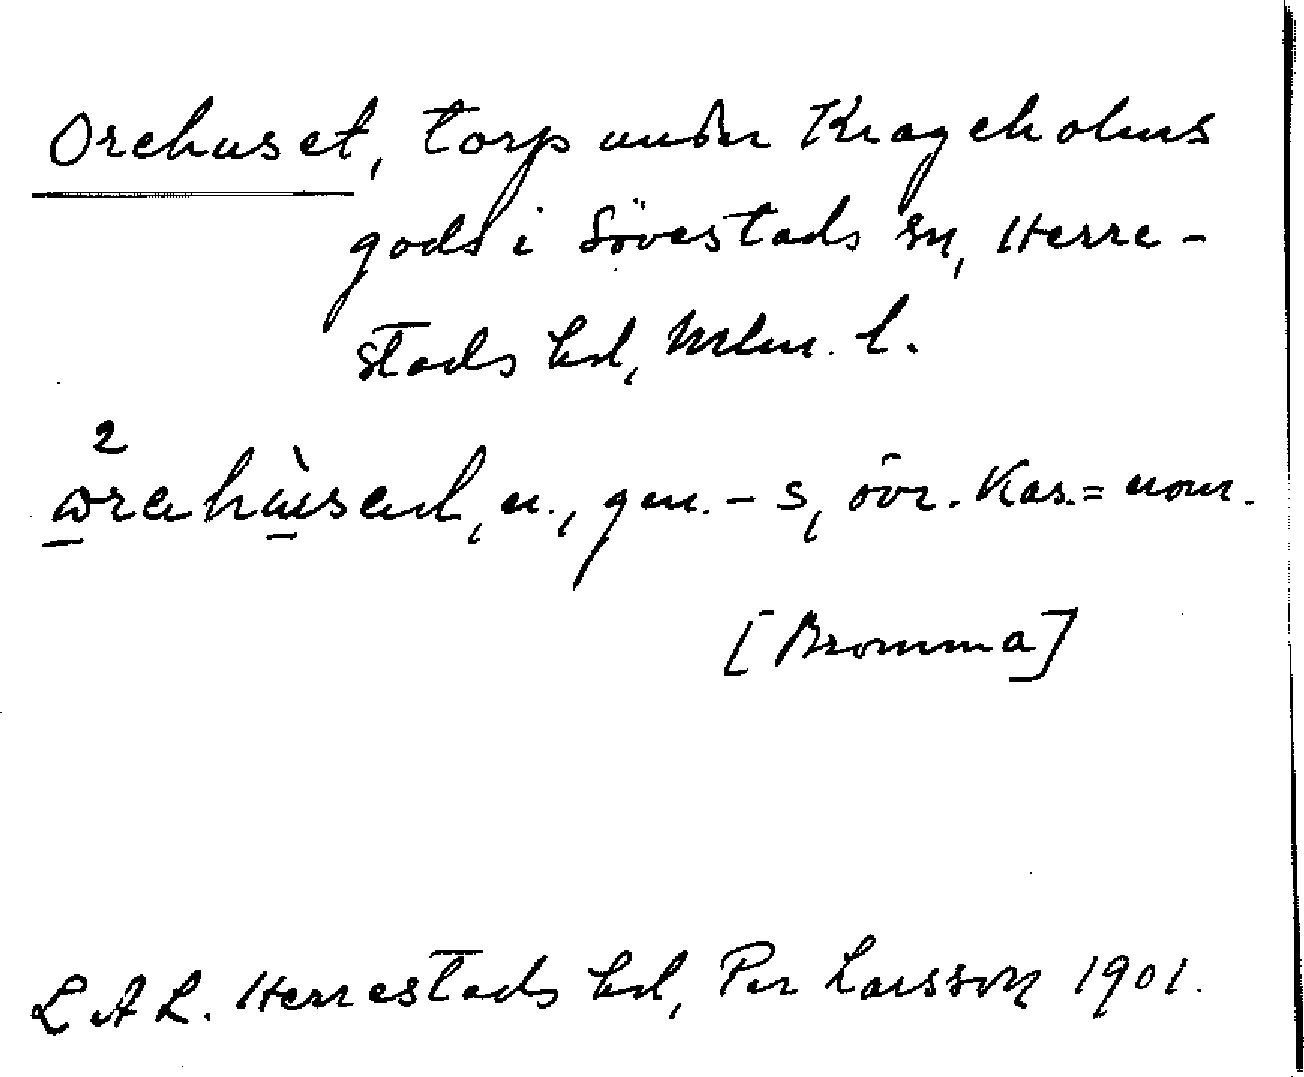 Orehuset, torp under Krageholms
gods i Sövestads sn, Herre-
stads hd, Mlm. l.
2
ωrəhùsəd, n., gen. -s, övr. Kas. = nom.
[Bromma]
L A L. Herrestads hd, Per Larsson 1901.